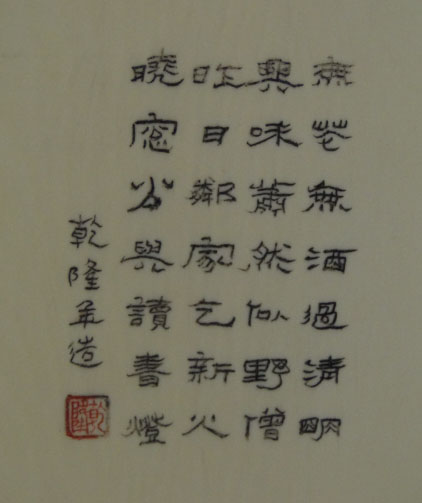 無花無酒過清明
興味蕭然似野僧
昨日鄰家乞新火
曉窓分與讀書燈
乾隆年造
乾隆